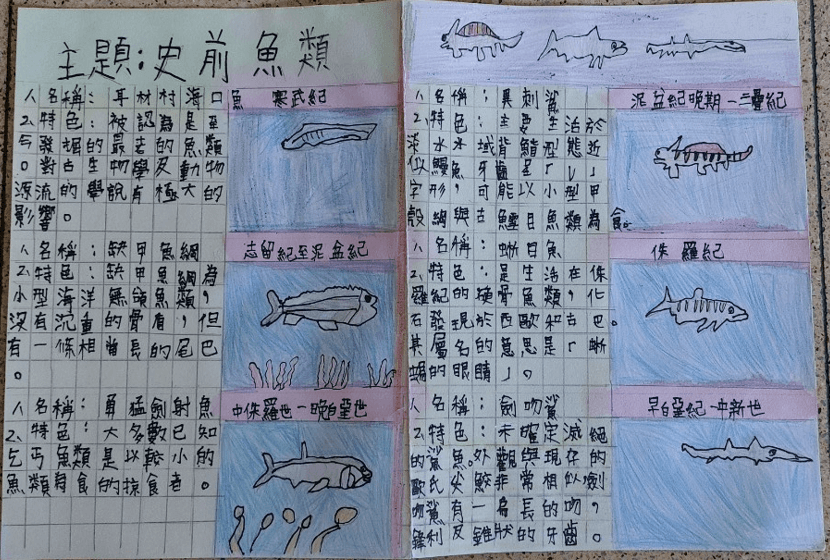 主題:史前魚類
1、名稱:耳材村海口魚
寒武紀
2、特色:被認為是至
今發掘的最古的魚類
。對古生物學及動物
源流的學說有極大的
影響。
1、名稱:缺甲魚綱
志留紀至泥盆紀
2、特色:缺甲魚綱為
小型海洋無頜魚類,
沒有沉重的骨盾,但
有一條相當長的尾巴
。
1、名稱:勇猛劍射魚
中侏羅世-晚白堊世
2、特色:大多數已知
乞丐魚類是以較小的
魚類為食的掠食者。
1、名稱:異刺鯊
泥盆紀晚期-三疊紀
2、特色:主要生活於
淡水水域背鰭型態近
似鰻魚,牙齒呈「V」
字形,可能以小型甲
殼綱與古鱈目魚類為食。
1、名稱:蜥目魚
侏羅紀
2、特色:是生活在侏
羅紀的硬骨魚類,化
石發現於西歐和古巴。
其屬名的意思是「蜥
蜴的眼睛」。
1、名稱:劍吻鯊
早白堊紀-中新世
2、特色:未確定滅絕
的鯊魚。外觀與現存的
歐氏尖鮫非常相似,劍
吻鯊有一扁長的吻,
鋒利及錐狀的牙齒。